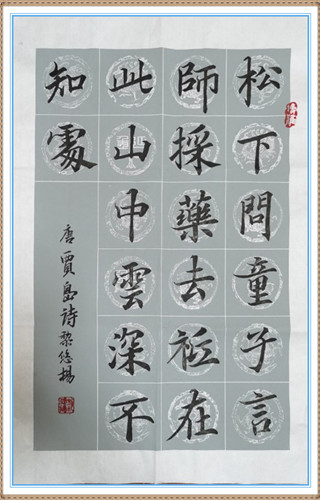 松下問童子言
師採藥去祇在
此山中雲深不
知處
唐賈島詩黎悠揚